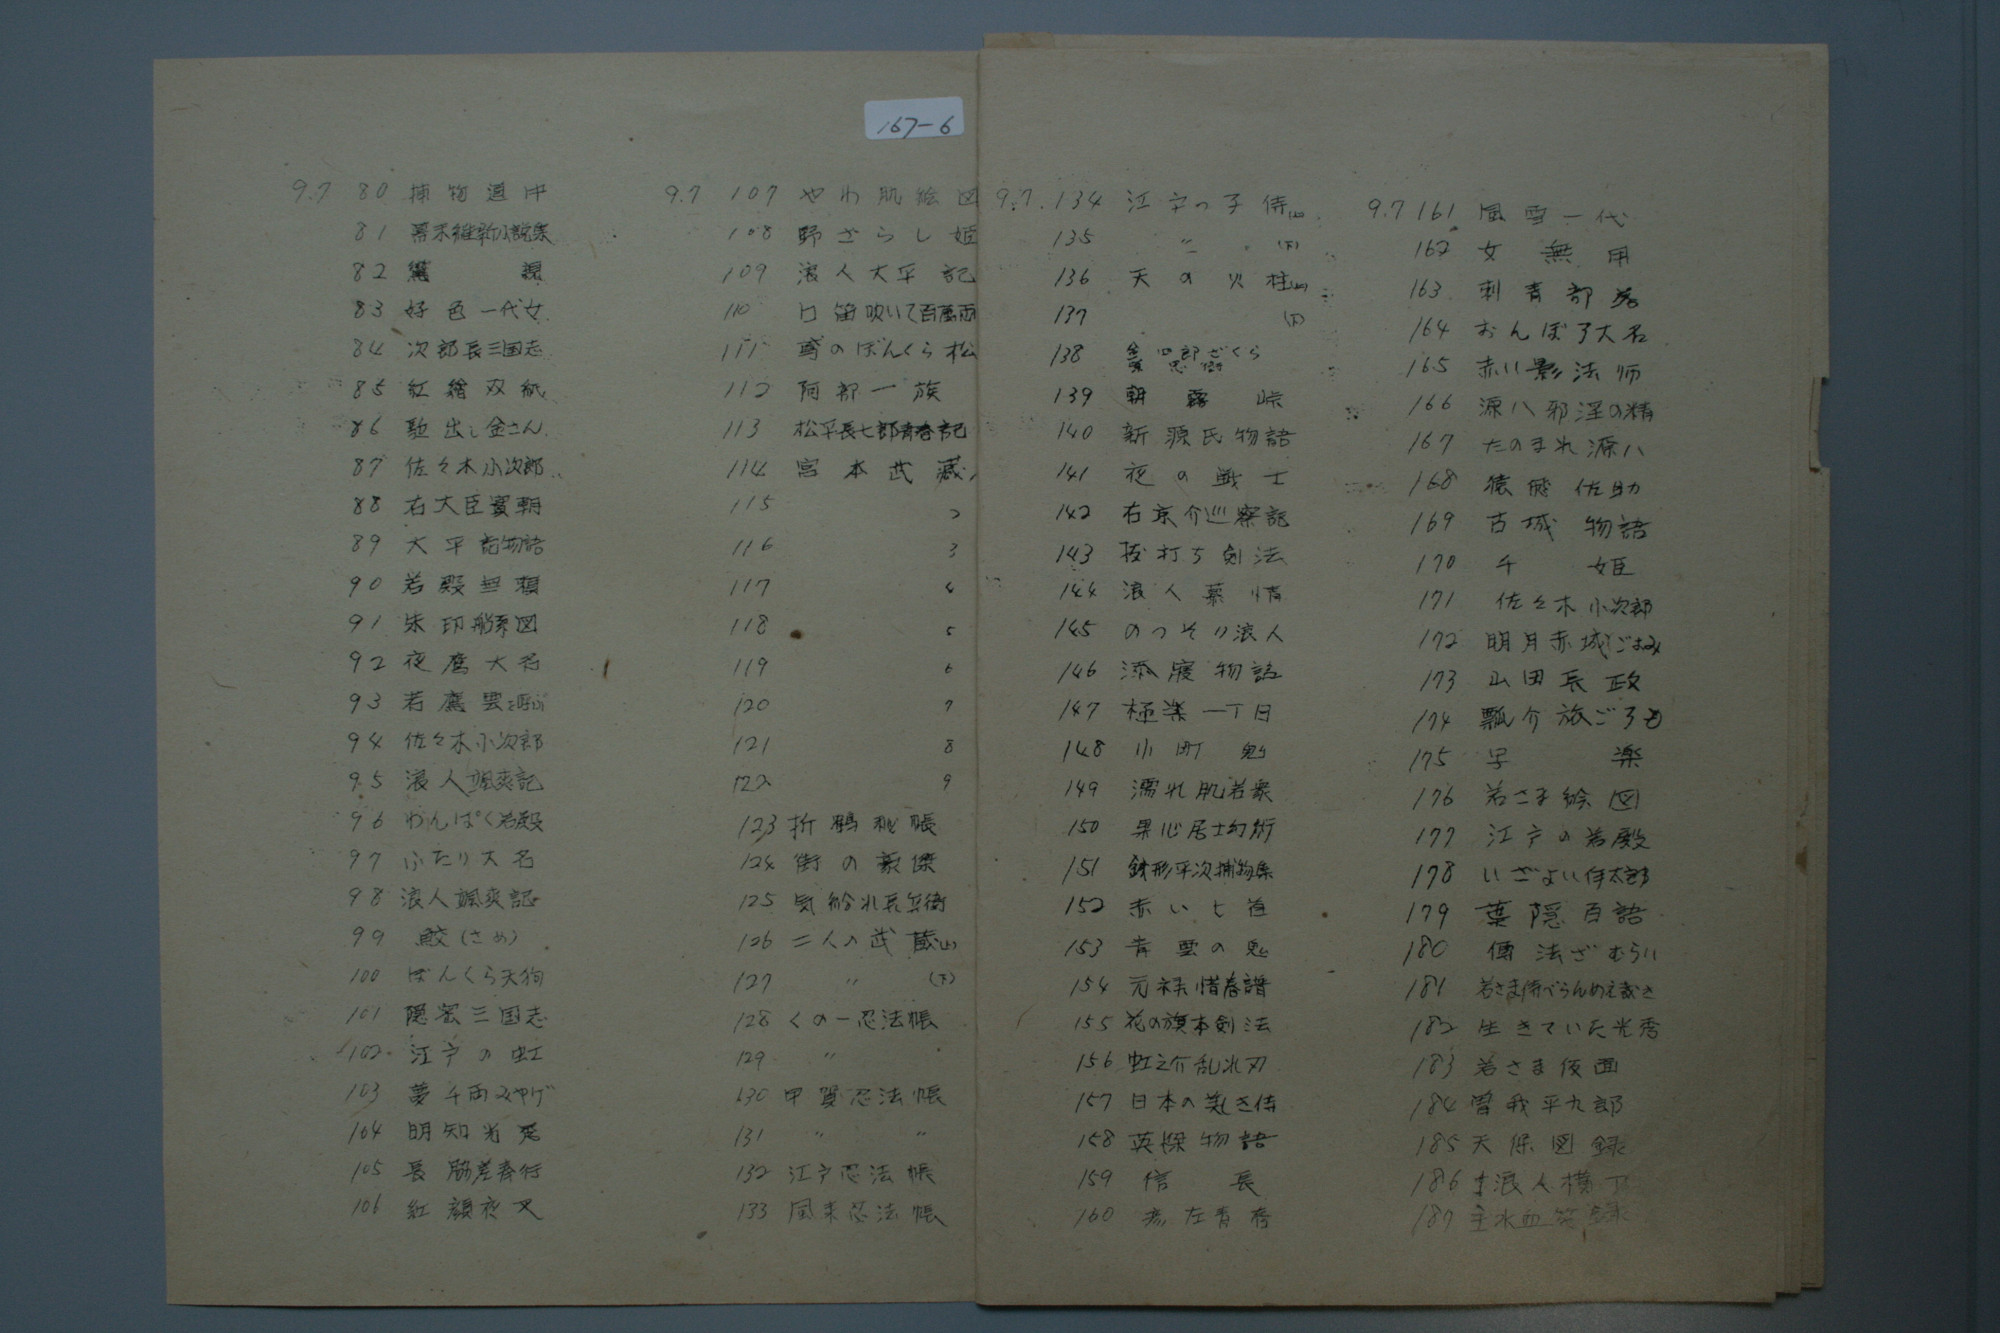 167-6
9.7 80 捕物道中
81 幕末維新小説集
82 鴛 課
83 好色一代女
84 次郎長三国志
85 紅繪双紙
86 駈出し金さん
87 佐々木小次郎
88 右大臣實朝
89 大平記物語
90 若殿無頼
91 朱印船系図
92 夜鷹大名
93 若鷹雲を呼ぶ
94 佐々木小次郎
95 浪人颯爽記
96 わんぱく若殿
97 ふたり大名
98 浪人颯爽記
99 鮫(さめ)
100 ぼんくら天狗
101 隠密三国志
102 江戸の虹
103 夢千両みやげ
104 明知光秀
105 長脇差奉行
106 紅顔夜叉
9.7 107 やわ肌絵図
108 野ざらし姫
109 浪人大平記
110 口笛吹いて百萬両
111 鳶のぼんくら松
112 阿部一族
113 松平長七郎青春記
114 宮本武蔵1
115 2
116 3
117 4
118 5
119 6
120 7
121 8
122 9
123 折鶴秘帳
124 街の豪傑
125 気紛れ兵兵衛
126 二人の武蔵(上)
127 〃 (下)
128 くの一忍法帳
129 〃
130 甲賀忍法帳
131 〃 〃
132 江戸忍法帳
133 風来忍法帳
9.7.134 江戸っ子侍(上)
135 〃 (下)
136 天の火柱(上)
137 (下)
138 金四郎ざくら
139 朝霧峠
140 新源氏物語
141 夜の戦士
142 右京介巡察記
143 抜打ち剣法
144 浪人慕情
145 のっそり浪人
146 添寝物語
147 極楽一丁目
148 小町
149 濡れ肌若衆
150 果心居士幻術
151 銭形平次捕物集
152 赤い七首
153 青雲の鬼
154 元禄惜春譜
155 花の旗本剣法
156 虹之介乱れ刃
157 日本の美しき侍
158 英傑物語
159 信長
160 彦左青春
9.7 161 風雪一代
162 女無用
163 刺青部落
164 おんぼろ大名
165 赤い影法師
166 源八邪淫の精
167 たのまれ源八
168 猿飛佐助
169 古城物語
170 千姫
171 佐々木小次郎
172 明月赤城じごみ
173 山田長政
174 瓢介旅ごろも
175 写楽
176 若さま絵図
177 江戸の若殿
178 いざよい伴太郎
179 葉隠百語
180 傳法ざむらい
181 若さま侍べらんめえ裁き
182 生きていた光秀
183 若さま仮面
184 曽我平九郎
185 天保図録
186 浪人横丁
187 主水血笑録